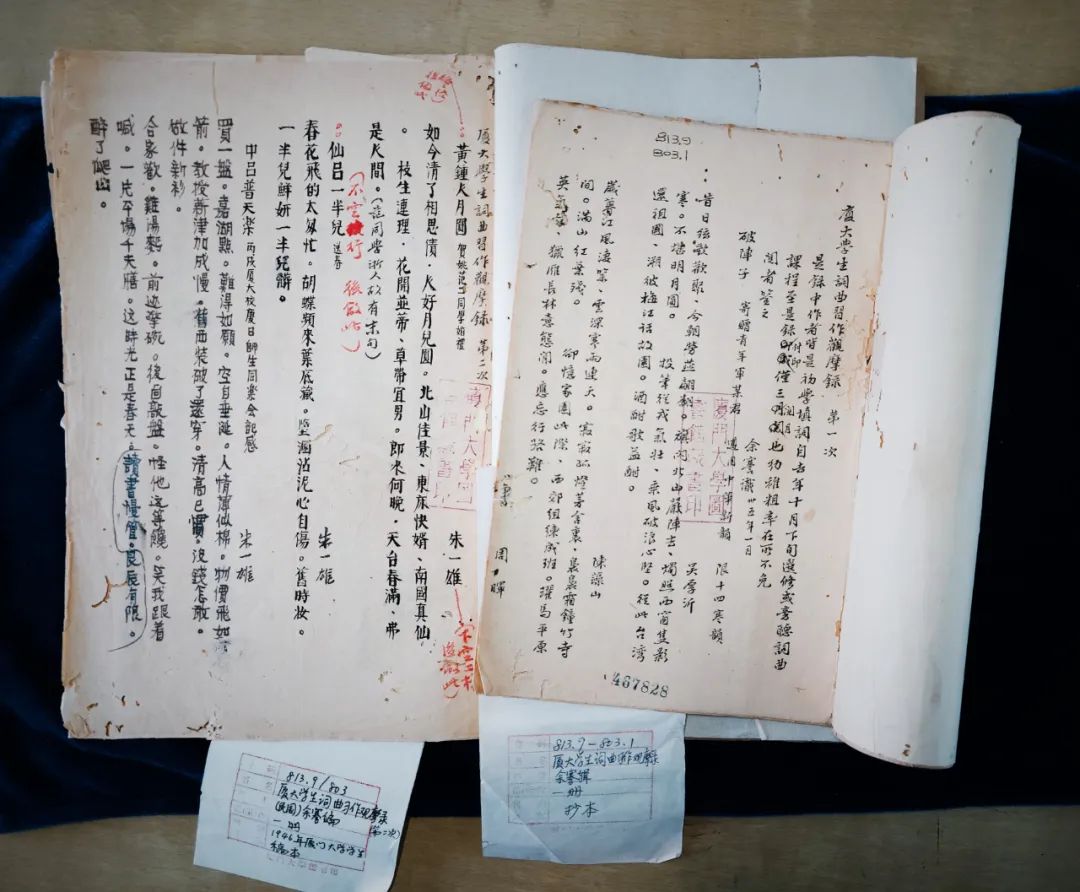 廈大學生詞曲習作觀摩錄 第一次
是錄中作者皆是初學填詞自去年十月下旬選修或旁聽詞曲
課程至是錄付印時僅三閱月也幼稚粗率在所不免
閱者鑒之
余謇識 卅五年一月
破陣子 寄贈青年軍某君 遵用中華新韻 限十四寒韻
吳厚沂
昔日弦歌歡聚、今朝勞燕翩翩。
寒。不堪明月圓。 投筆從戎氣壯、乘風破浪心堅。從此台灣
還祖國、潮彼梅江話故園。酒酣歌益酣。
陳謀山
歲暮江風淒緊、雲深寒雨連天。寂寂孤燈茅舍裏、裊裊霜鐘竹寺
間。滿山紅葉殘。 卻憶家園此際、西郊組練成班。躍馬平原
英氣、獵雁長林意態閒。應忘行路難。
周
467828
813.9
803.1
廈門大學圖
書館藏書印
廈大學生詞曲習作觀摩錄 第二次
黃鍾人月圓 同學婚禮
朱一雄
如今清了相思債·人好月兒圓。北山佳景、東床快婿、南國真仙
。 枝生連理·花開並蒂、草帶宜男。即來何晚·天台春滿·弗
是人間。
(不空行 後做此)
仙呂一半兒 送春
朱一雄
春花飛的太匆忙。胡蝶頻來葉底藏。墜溷沾泥心自傷。舊時妝。
一半兒鮮妍一半兒髒。
中呂普天樂 丙戌廈大校慶日師生同樂會誌感
朱一雄
買一盤。嘉湖點。難得如願。空自垂涎。人情薄似棉。物價飛如
箭。教授新津加成慢。舊西裝破了還穿。清高已慣。沒錢怎敢。
做件新衫。
讀書慢管。良辰有限。
合家歡。雞湯麵。前遮擎碗。後面敲盤。怪他這等饞。笑我跟着
喊。一片平場千夫膳。這時光正是春天。
醉了爬出。
813.9/803
厦大学生词曲习作观摩录
(第二次)
(民国)余謇编
一册
1946年厦门大学学生
稿本
813.9-803.1
厦大学生词曲习作观摩录
余謇辑
一册
抄本